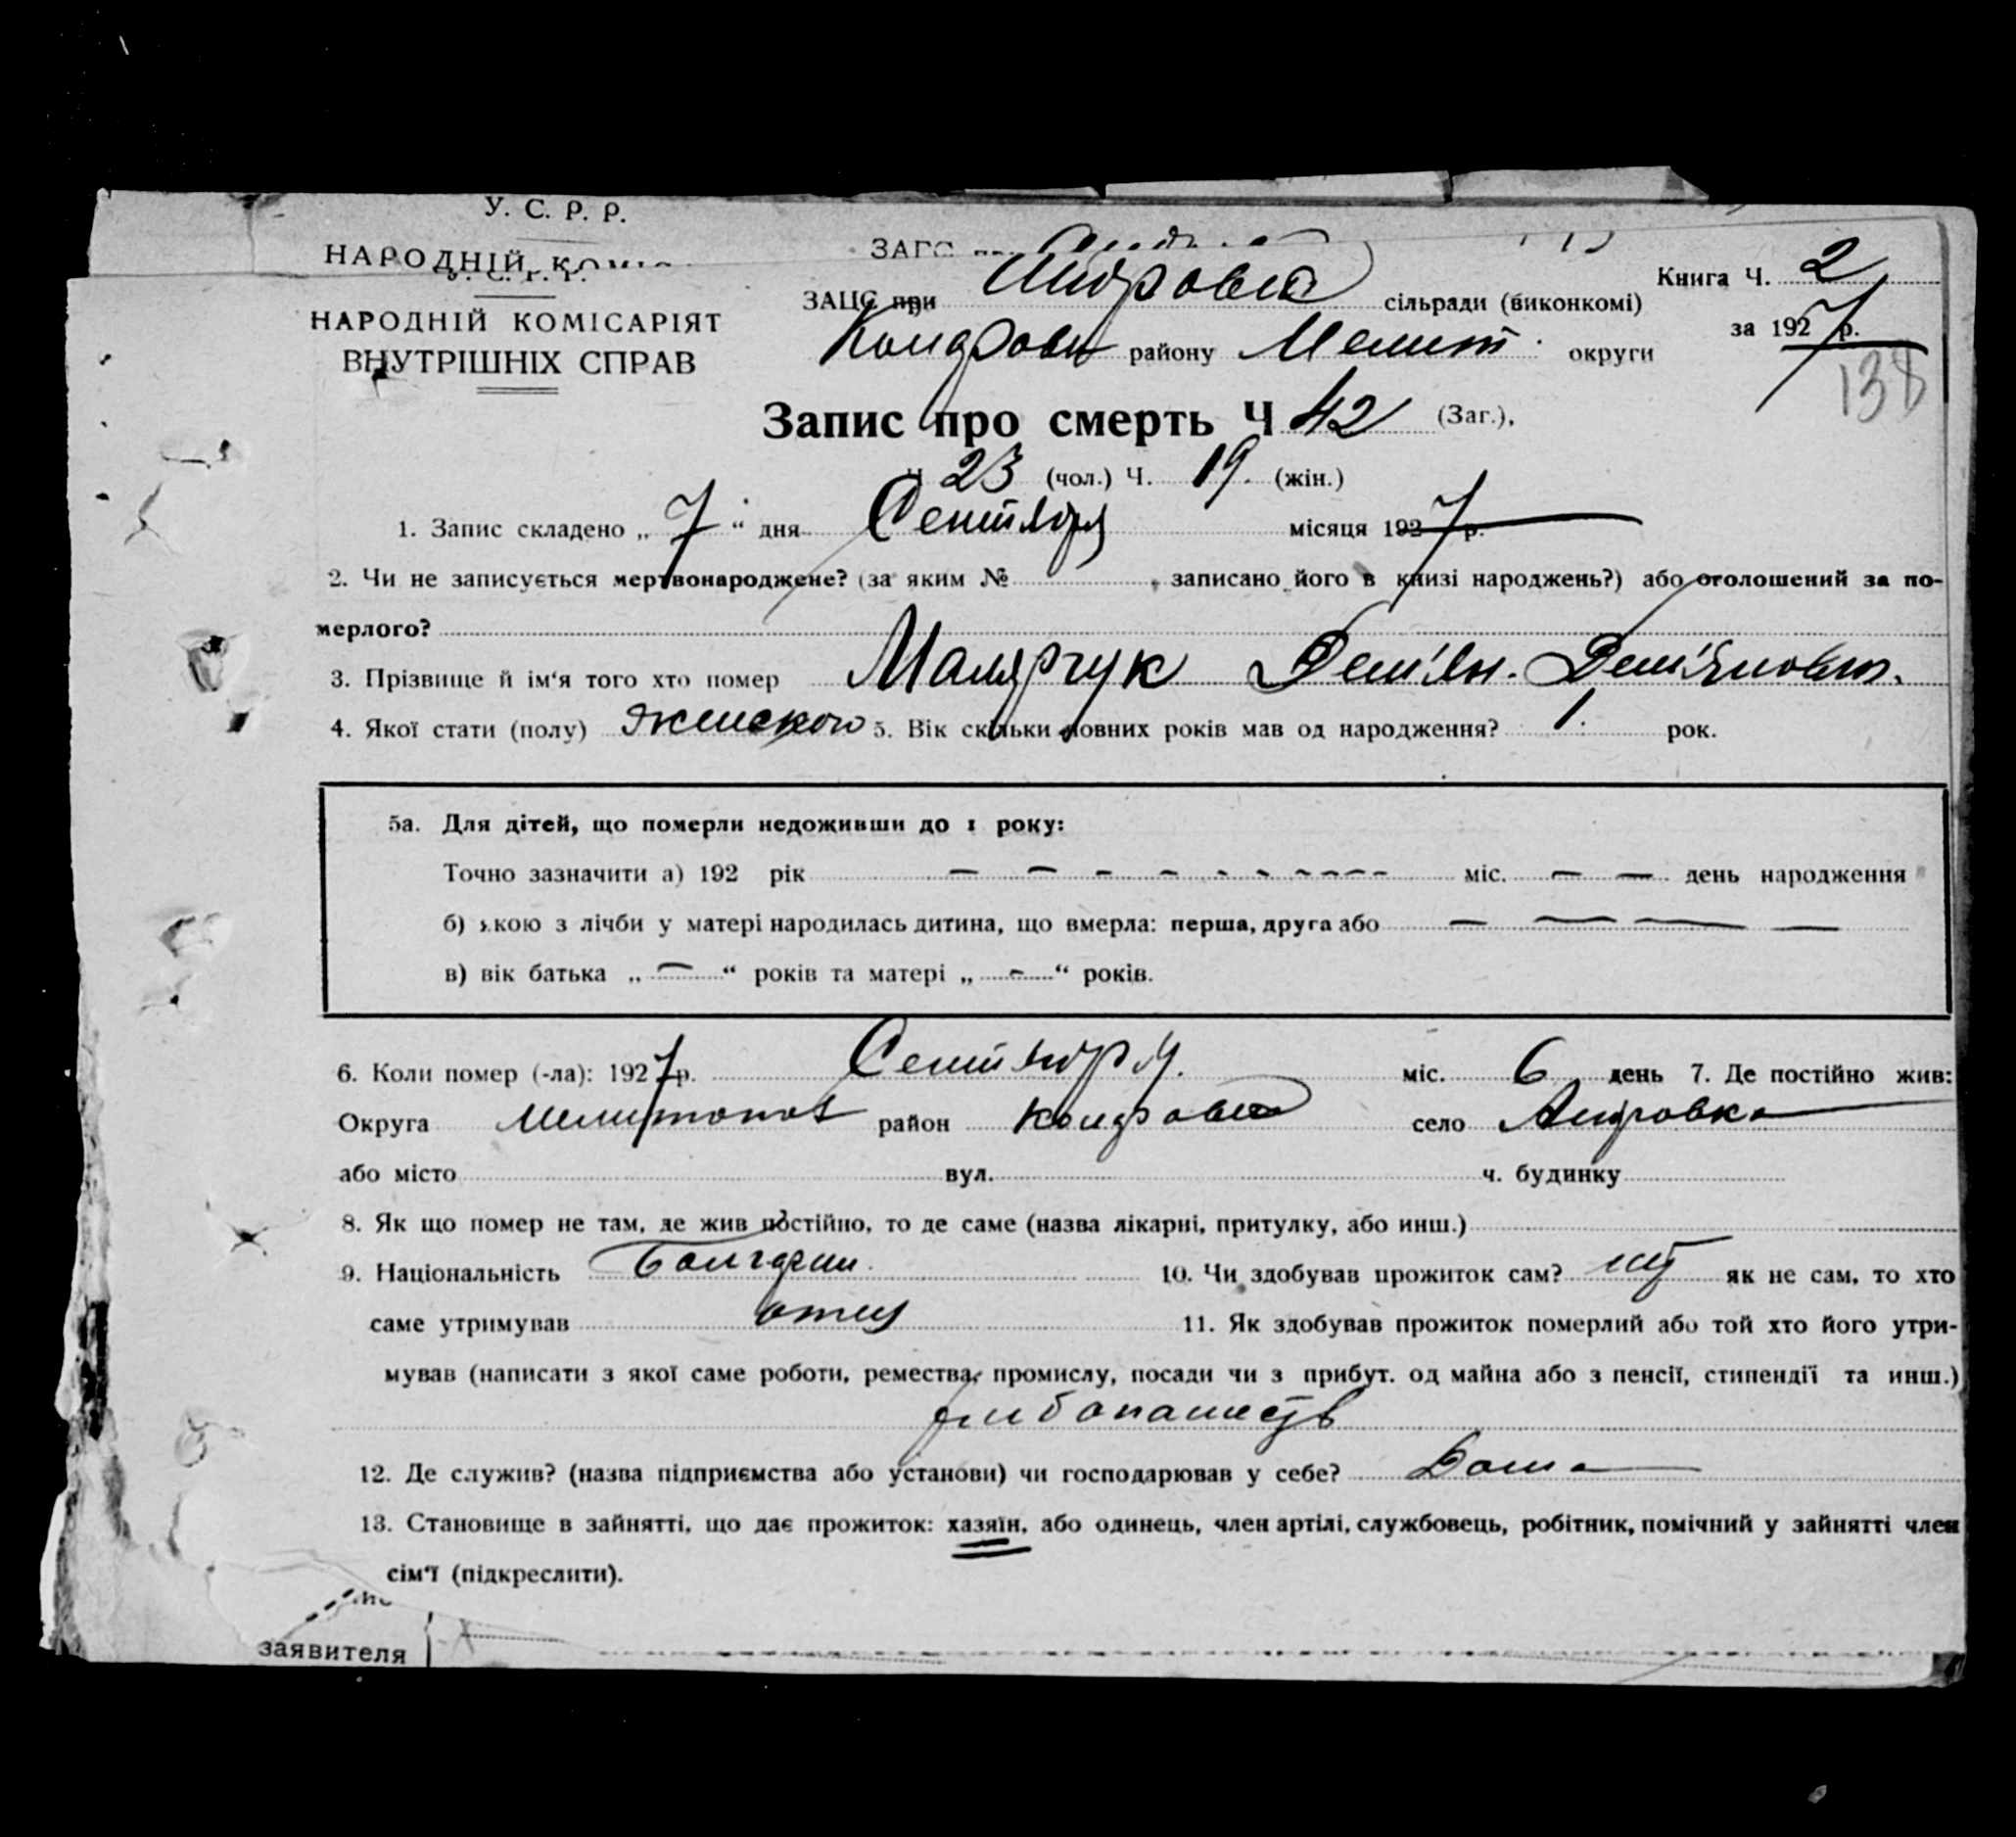 У. С. Р. Р.
НАРОДНІЙ
ЗАГС
НАРОДНІЙ КОМІСАРІЯТ
ВНУТРІШНІХ СПРАВ
ЗАЦС при сільради (виконкомі)
Книга Ч. 2
району Мелит. округи
за 1927 р.
138
Запис про смерть Ч 42 (Заг.),
Ч 23 (чол.) Ч. 19. (жін.)
1. Запис складено „ 7 “ дня Сентября місяця 1927 р.
2. Чи не записується мертвонароджене? (за яким № , записано його в книзі народжень?) або оголошений за по-
мерлого?
3. Прізвище й ім'я того хто помер Малярчук Дем'ян. Дем'янович.
4. Якої стати (полу) женского 5. Вік скільки повних років мав од народження? 1. рок.
5а. Для дітей, що померли недоживши до 1 року:
Точно зазначити а) 192 рік — — — — — — — — — — міс. — — день народження
б) якою з лічби у матері народилась дитина, що вмерла: перша, друга або — — — —
в) вік батька „ — “ років та матері „ — “ років.
6. Коли помер (-ла): 1927 р. Сентября міс. 6 день 7. Де постійно жив:
Округа район село
або місто вул. ч. будинку
8. Як що помер не там, де жив постійно, то де саме (назва лікарні, притулку, або инш.)
9. Національність Болгарин. 10. Чи здобував прожиток сам? нет як не сам, то хто
саме утримував отец 11. Як здобував прожиток померлий або той хто його утри-
мував (написати з якої саме роботи, ремества, промислу, посади чи з прибут. од майна або з пенсії, стипендії та инш.)
12. Де служив? (назва підприємства або установи) чи господарював у себе? Дома
13. Становище в зайнятті, що дає прожиток: хазяїн, або одинець, член артілі, службовець, робітник, помічний у зайнятті член
сім'ї (підкреслити).
заявителя